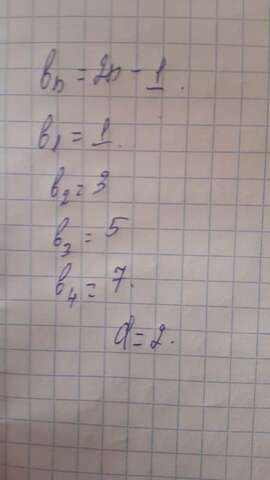 bn = 2n - 1.
b1 = 1.
b2 = 3
b3 = 5
b4 = 7.
d = 2.